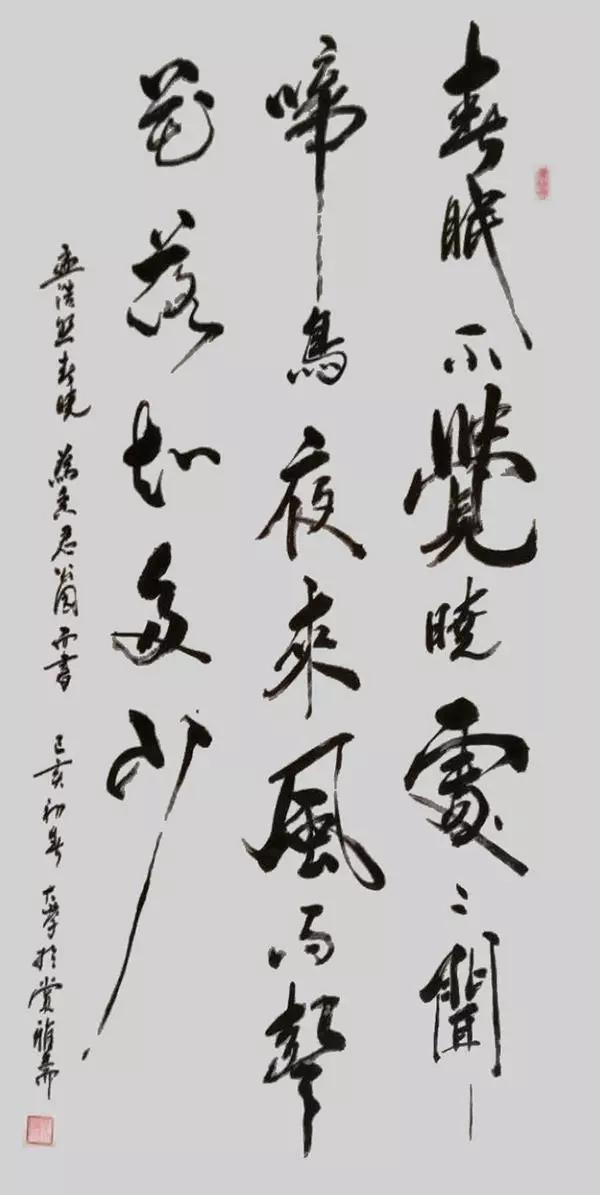 春眠不覺曉處〻聞
啼鳥夜來風雨聲
花落知多少
孟浩然春曉 為 君 而書 己亥初春 大 於賞雅齋